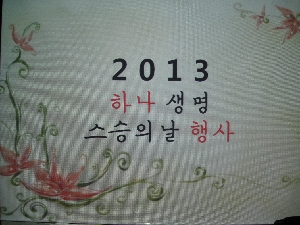 2013
하나 생명
스승의날 행사